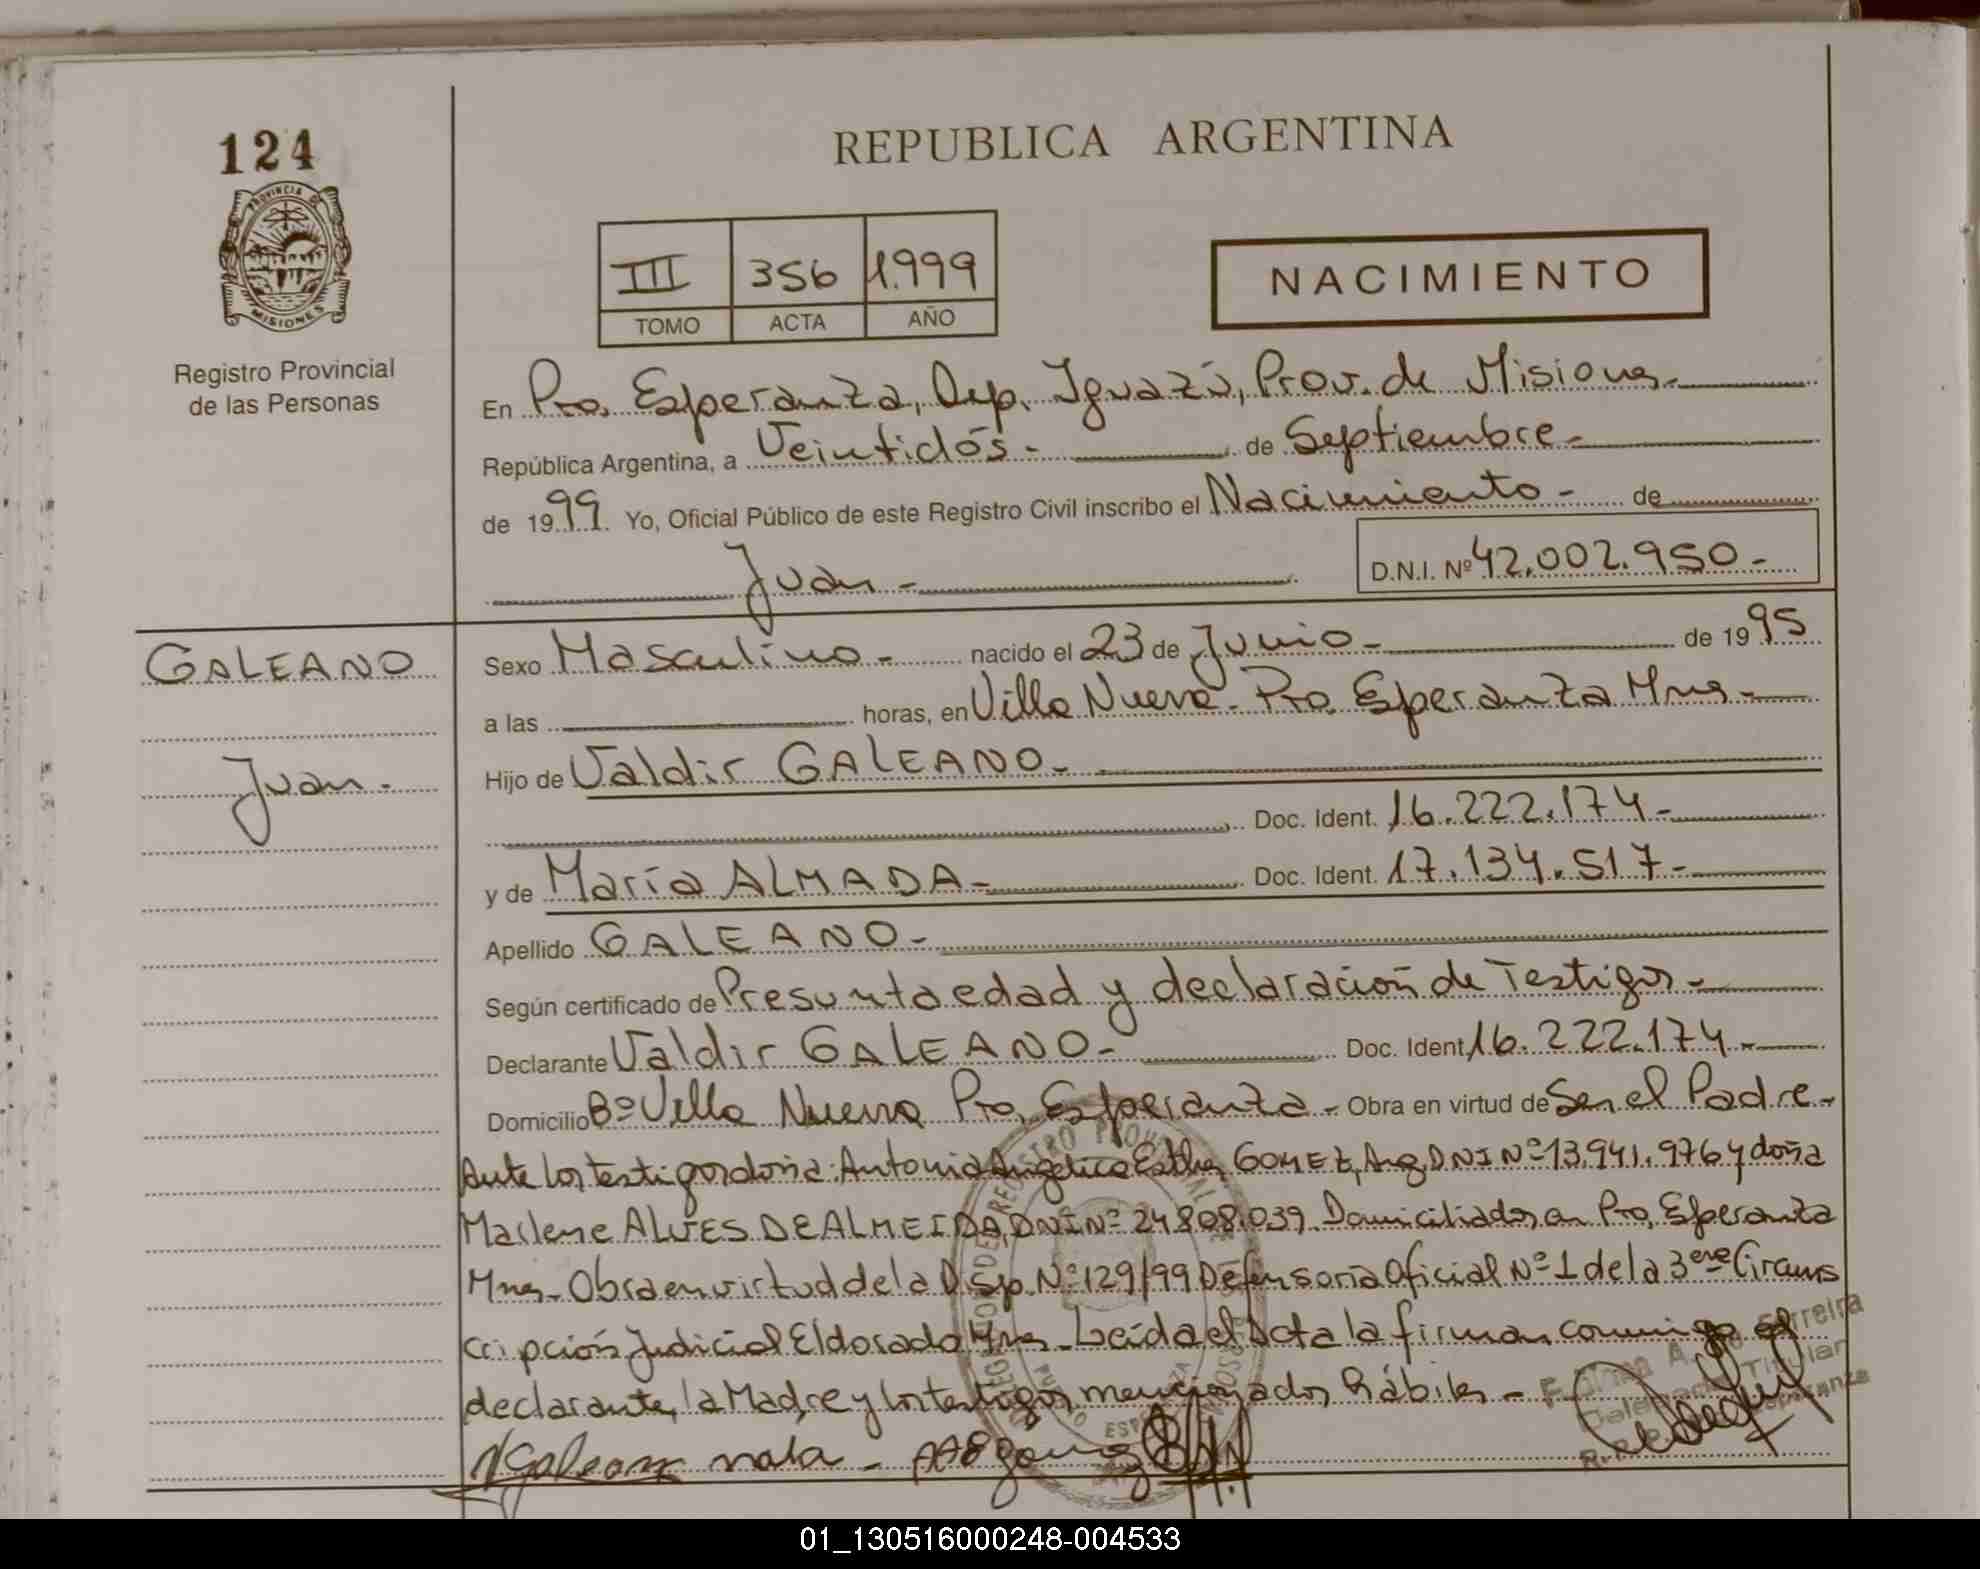 124
PROVINCIA DE
MISIONES
Registro Provincial
de las Personas
REPUBLICA ARGENTINA
III 356 1.999
TOMO ACTA AÑO
NACIMIENTO
En Pto. Esperanza, Dep. Iguazú, Prov. de Misiones.-
República Argentina, a Veintidós - de Septiembre -
de 1999. Yo, Oficial Público de este Registro Civil inscribo el Nacimiento - de
Juan - D.N.I. Nº 42.002.950 -
GALEANO
Juan -
Sexo Masculino - nacido el 23 de Junio - de 1995
a las horas, en Villa Nueva - Pto. Esperanza Mnes -
Hijo de Valdir GALEANO -
Doc. Ident. 16.222.174 -
y de María ALMADA - Doc. Ident. 17.134.517 -
Apellido GALEANO -
Según certificado de Presunta edad y declaración de Testigos -
Declarante Valdir GALEANO - Doc. Ident. 16.222.174 -
Domicilio Bº Villa Nueva Pto. Esperanza - Obra en virtud de Ser el Padre -
Ante los testigos doña: Antonia Angélica Esther GOMEZ, Arg. DNI Nº 13.941.976 y doña
Marlene ALVES DE ALMEIDA, DNI Nº 24.808.039 Domiciliados en Pto. Esperanza
Mnes - Obra en virtud de la Disp. Nº 129/99 Defensoría Oficial Nº 1 de la 3era Circuns
cripción Judicial Eldorado Mnes - Leída el Acta la firman conmigo el
declarante, la Madre y los testigos mencionados hábiles -
Galeano
01_130516000248-004533